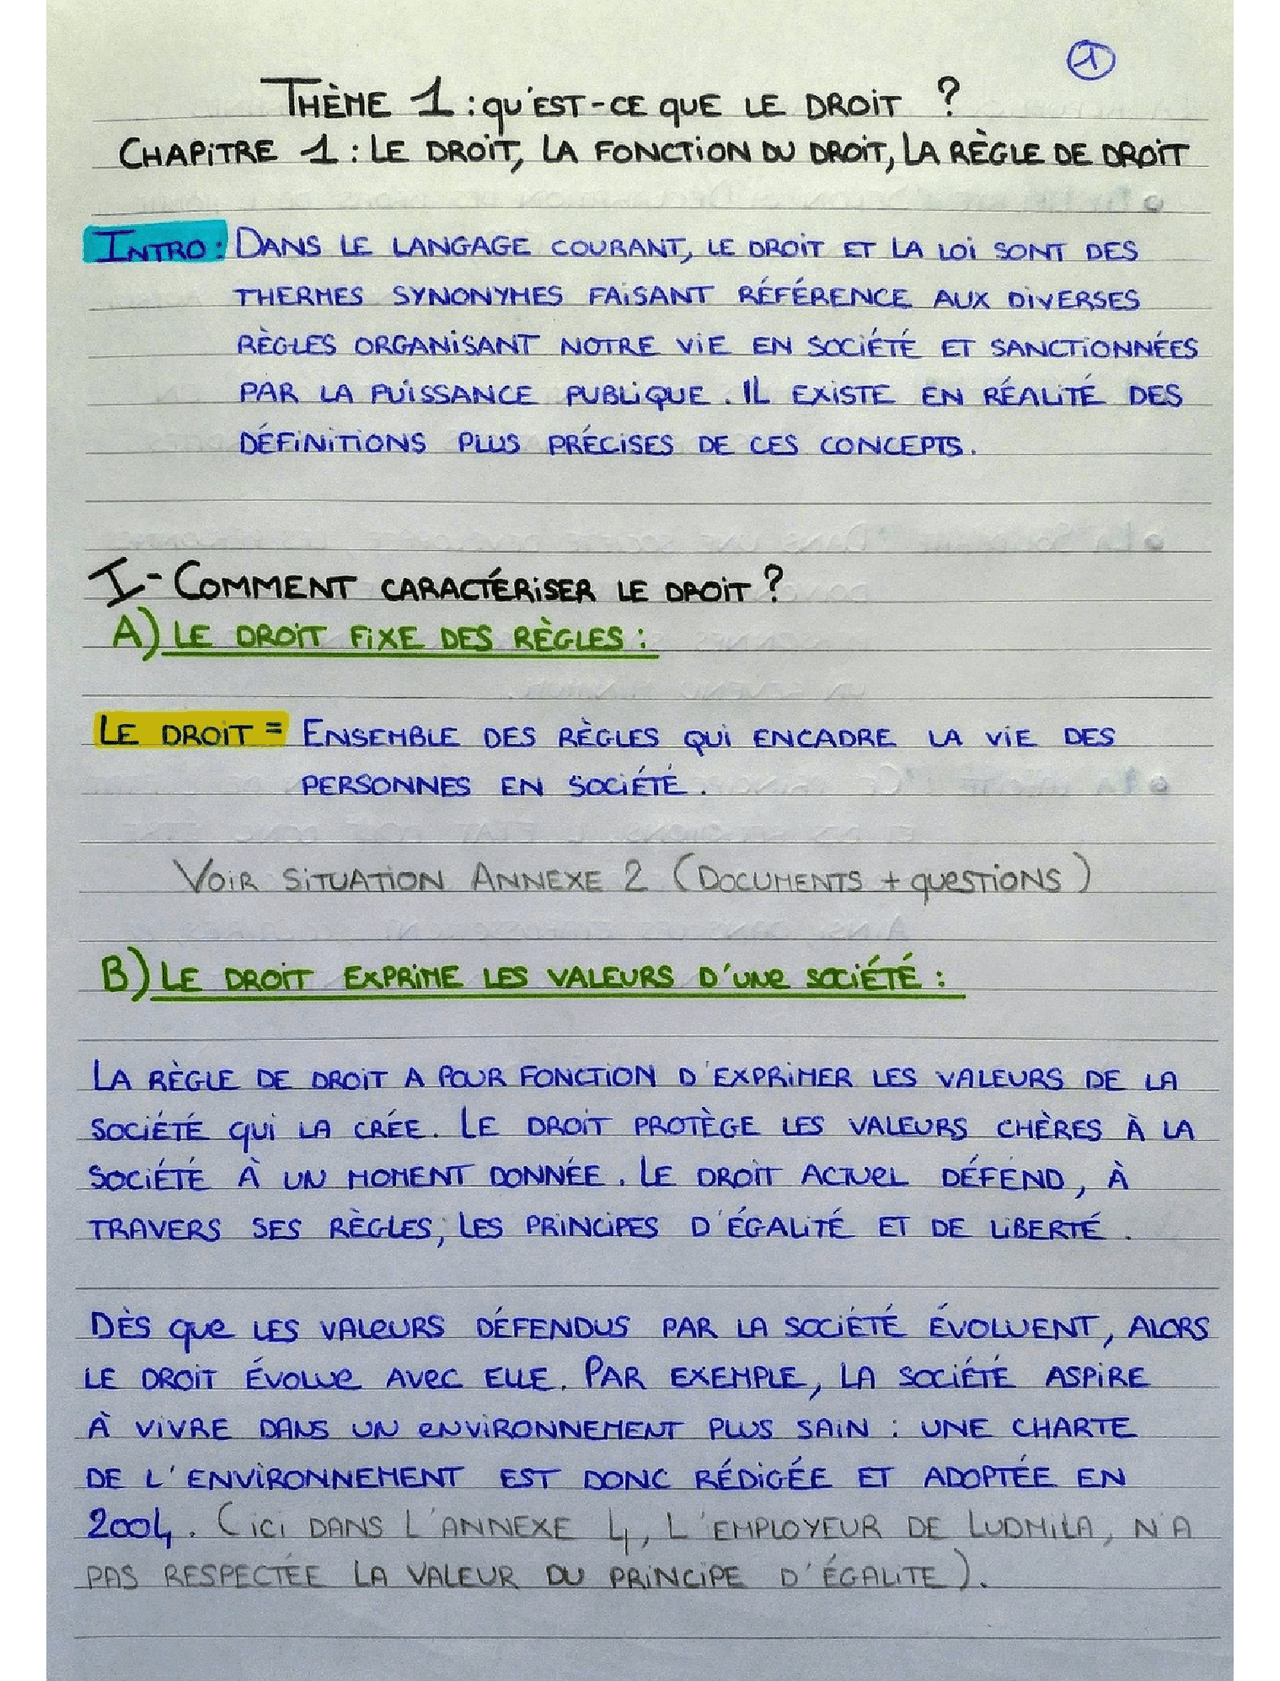 1
THÈME 1 : qu'EST-CE que LE DROIT ?
CHAPITRE 1 : LE DROIT, LA FONCTION DU DROIT, LA RÈGLE DE DROIT
INTRO : DANS LE LANGAGE COURANT, LE DROIT ET LA LOI SONT DES
THERMES SYNONYMES FAISANT RÉFÉRENCE AUX DIVERSES
RÈGLES ORGANISANT NOTRE VIE EN SOCIÉTÉ ET SANCTIONNÉES
PAR LA PUISSANCE PUBLIQUE. IL EXISTE EN RÉALITÉ DES
DÉFINITIONS PLUS PRÉCISES DE CES CONCEPTS.
I- COMMENT CARACTÉRISER LE DROIT ?
A) LE DROIT FIXE DES RÈGLES :
LE DROIT = ENSEMBLE DES RÈGLES QUI ENCADRE LA VIE DES
PERSONNES EN SOCIÉTÉ.
VOIR SITUATION ANNEXE 2 (DOCUMENTS + questions)
B) LE DROIT EXPRIME LES VALEURS D'UNE SOCIÉTÉ :
LA RÈGLE DE DROIT A POUR FONCTION D'EXPRIMER LES VALEURS DE LA
SOCIÉTÉ QUI LA CRÉE. LE DROIT PROTÈGE LES VALEURS CHÈRES À LA
SOCIÉTÉ À UN MOMENT DONNÉE. LE DROIT ACTUEL DÉFEND, À
TRAVERS SES RÈGLES, LES PRINCIPES D'ÉGALITÉ ET DE LIBERTÉ.
DÈS que LES VALEURS DÉFENDUS PAR LA SOCIÉTÉ ÉVOLUENT, ALORS
LE DROIT ÉVOLUE AVEC ELLE. PAR EXEMPLE, LA SOCIÉTÉ ASPIRE
À VIVRE DANS UN ENVIRONNEMENT PLUS SAIN : UNE CHARTE
DE L'ENVIRONNEMENT EST DONC RÉDIGÉE ET ADOPTÉE EN
2004. (ICI DANS L'ANNEXE 4, L'EMPLOYEUR DE LUDMILA, N'A
PAS RESPECTÉE LA VALEUR DU PRINCIPE D'ÉGALITE).